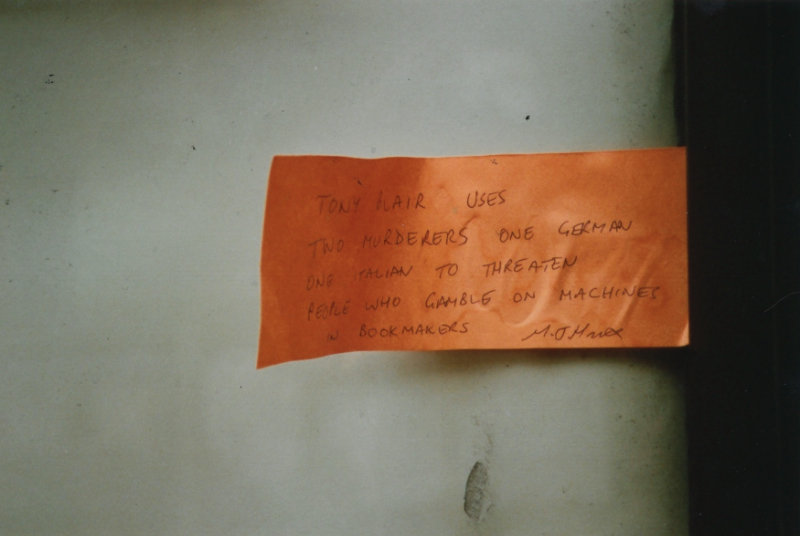 TONY BLAIR USES
TWO MURDERERS ONE GERMAN
ONE TALIAN TO THREATEN
PEOPLE WHO GAMBLE ON MACHINES
IN BOOKMAKERS M.J